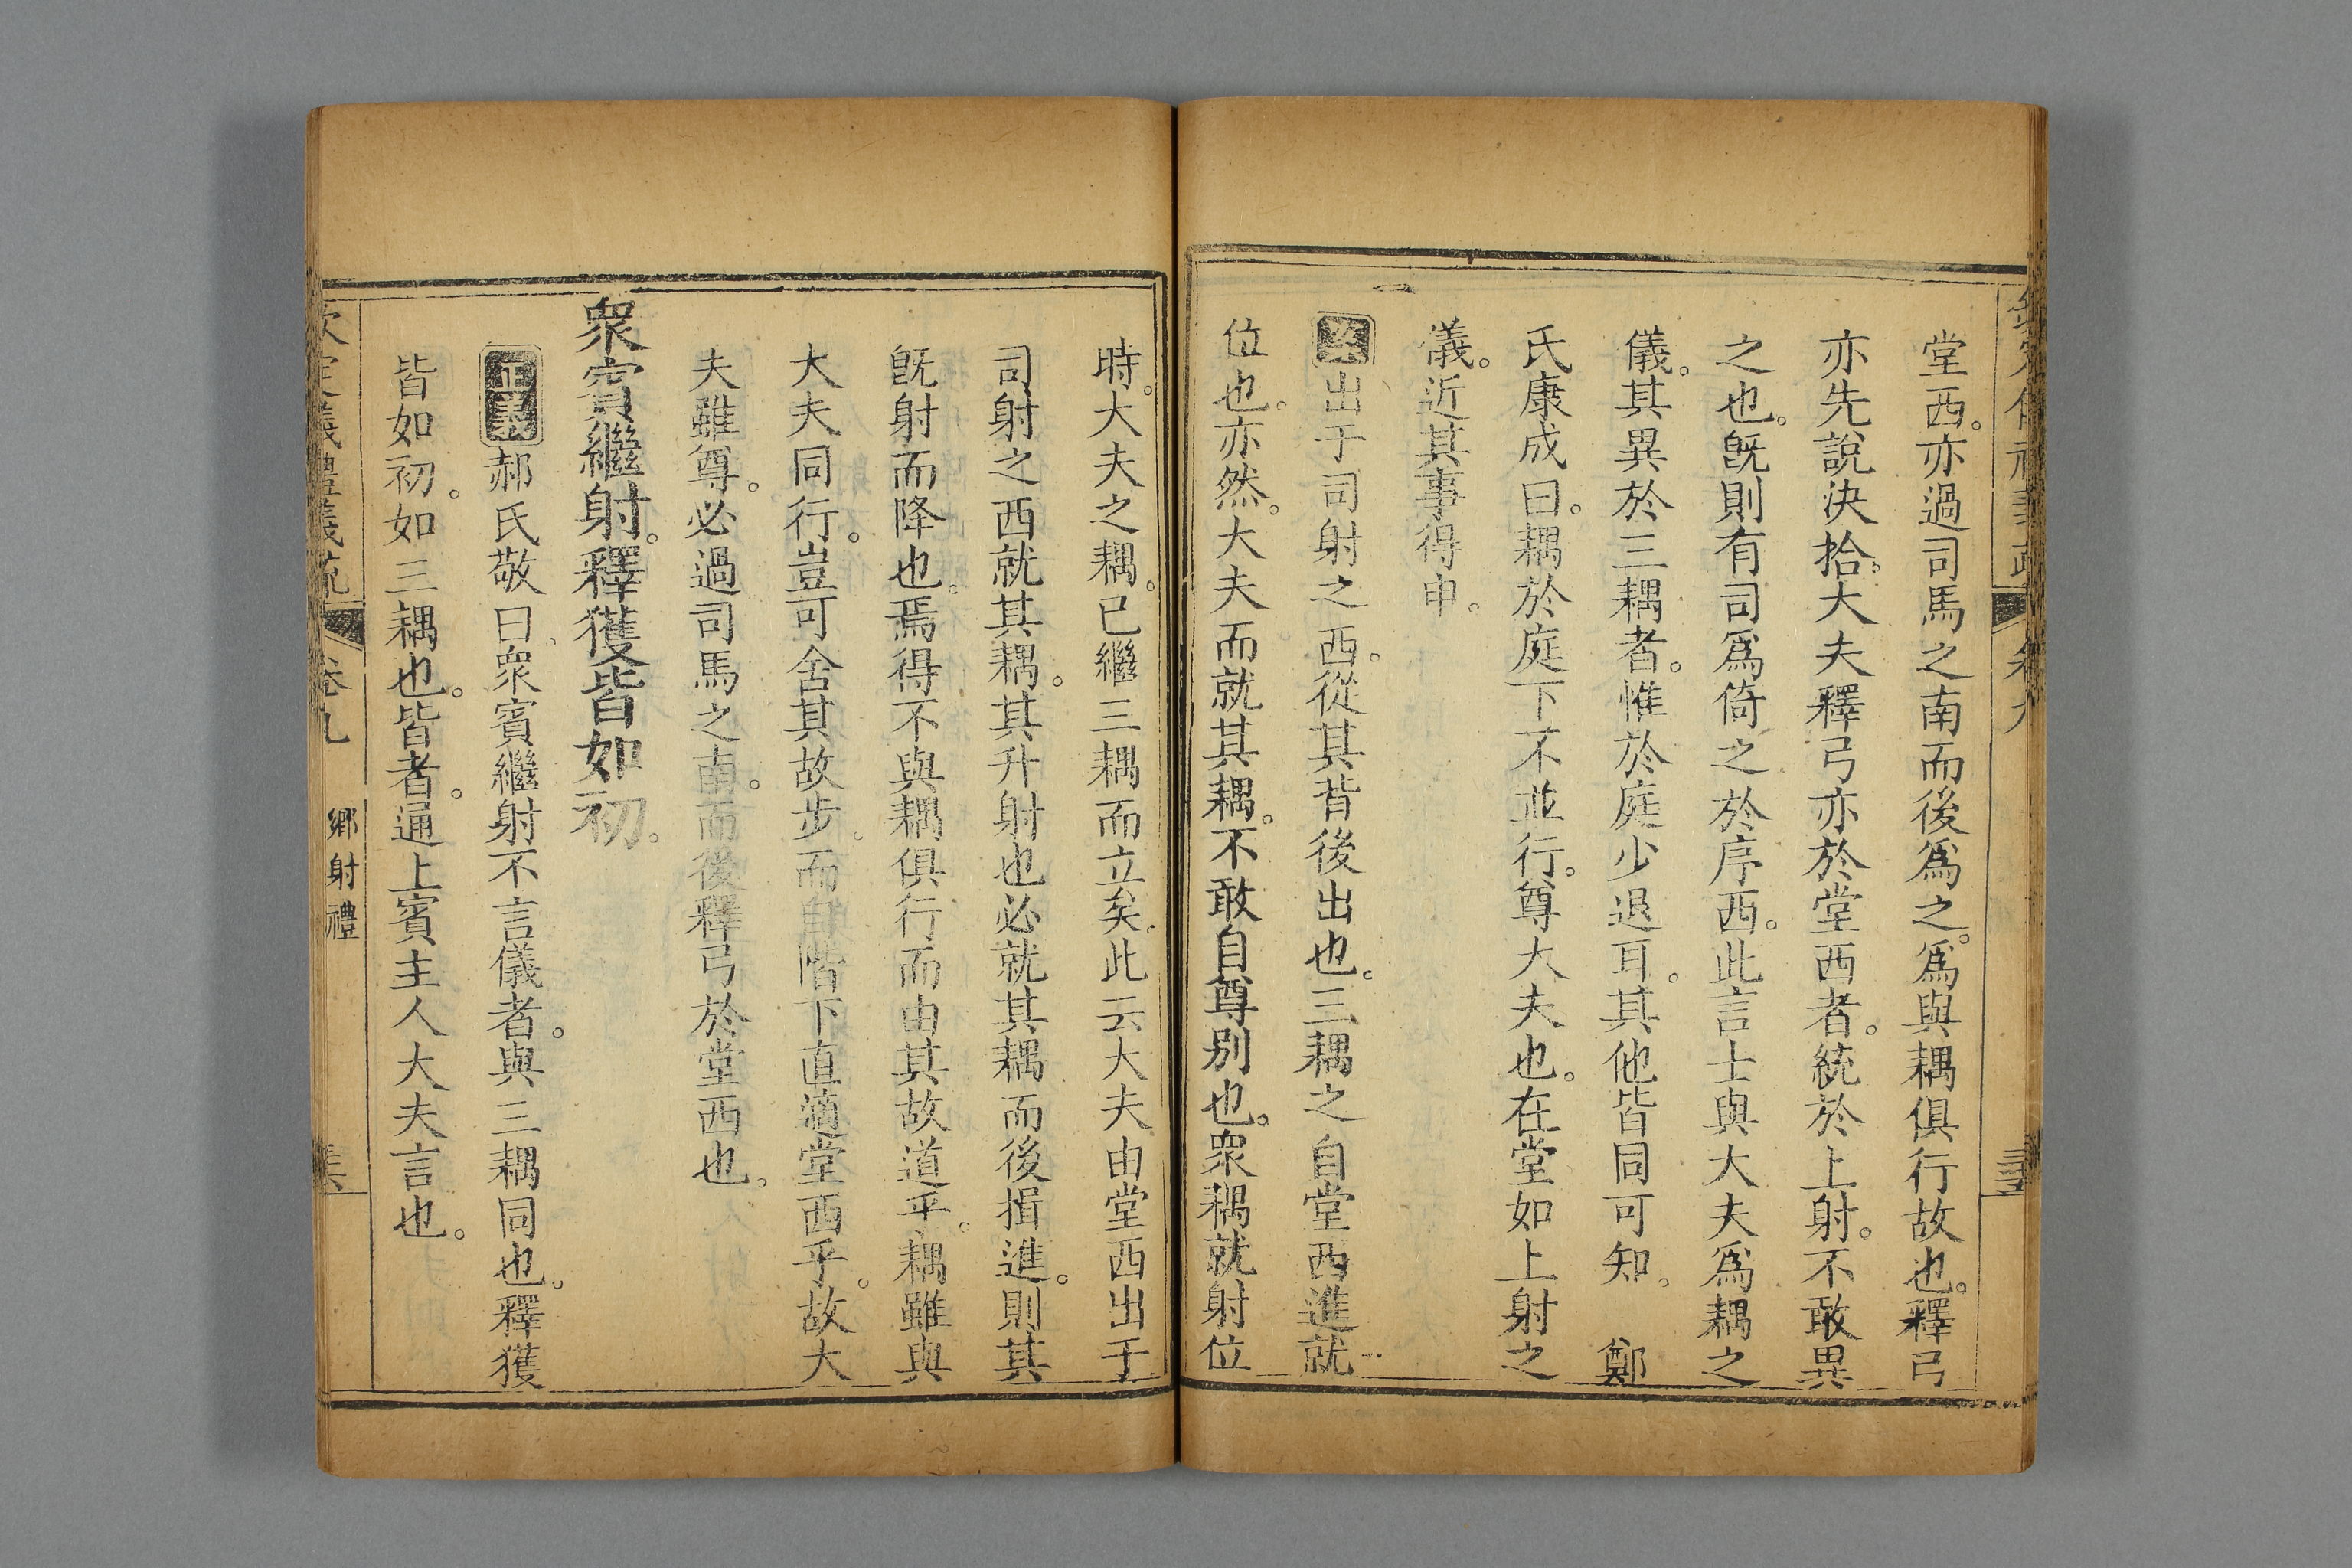 堂西。亦過司馬之南而後爲之。爲與耦俱行故也。釋弓
亦先說決拾。大夫釋弓亦於堂西者。統於上射。不敢異
之也。旣則有司爲倚之於序西。此言士與大夫爲耦之
儀。其異於三耦者。惟於庭少退耳。其他皆同可知。 鄭
氏康成曰。耦於庭下不並行。尊大夫也。在堂如上射之
儀。近其事得申。
案出于司射之西。從其背後出也。三耦之自堂西進就
位也。亦然。大夫而就其耦。不敢自尊別也。衆耦就射位
時。大夫之耦。已繼三耦而立矣。此云大夫由堂西出于
司射之西就其耦。其升射也必就其耦而後揖進。則其
旣射而降也。焉得不與耦俱行而由其故道乎。耦雖與
大夫同行。豈可舍其故步。而自階下直適堂西乎。故大
夫雖尊。必過司馬之南。而後釋弓於堂西也。
衆賓繼射。釋獲皆如初。
正義郝氏敬曰。衆賓繼射不言儀者。與三耦同也。釋獲
皆如初。如三耦也。皆者。通上賓主人大夫言也。
欽定儀禮義疏 卷九 鄉射禮